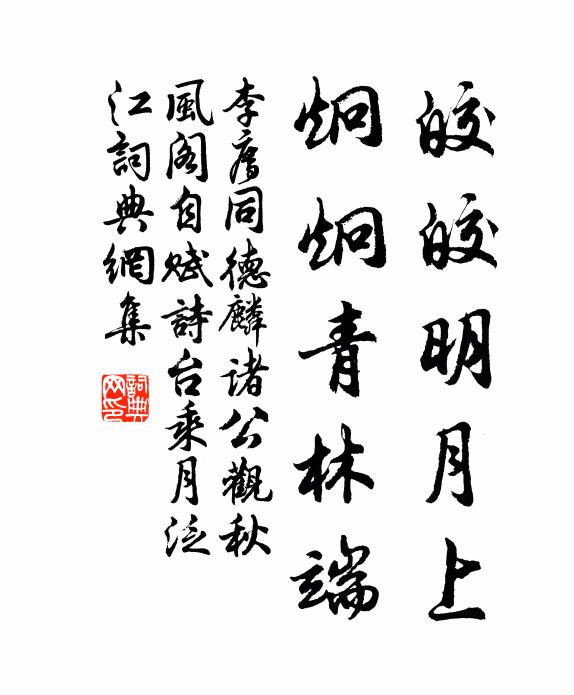 皎皎明月上
炯炯青林端
李廌同德麟諸公觀秋
風閣自賦詩台乘月泛
江詞典網集
詞典
网印